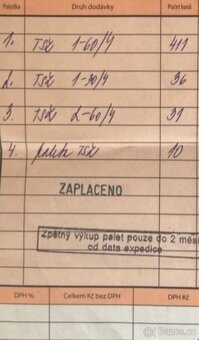 Položka Druh dodávky Počet kusů
1. TSŽ 1-60/4 411
2. TSŽ 1-30/4 96
3. TSŽ 2-60/4 31
4. palety TSŽ 10
ZAPLACENO
Zpětný výkup palet pouze do 2 měsí
od data expedice
DPH % Celkem Kč bez DPH DPH Kč
Bazos.cz